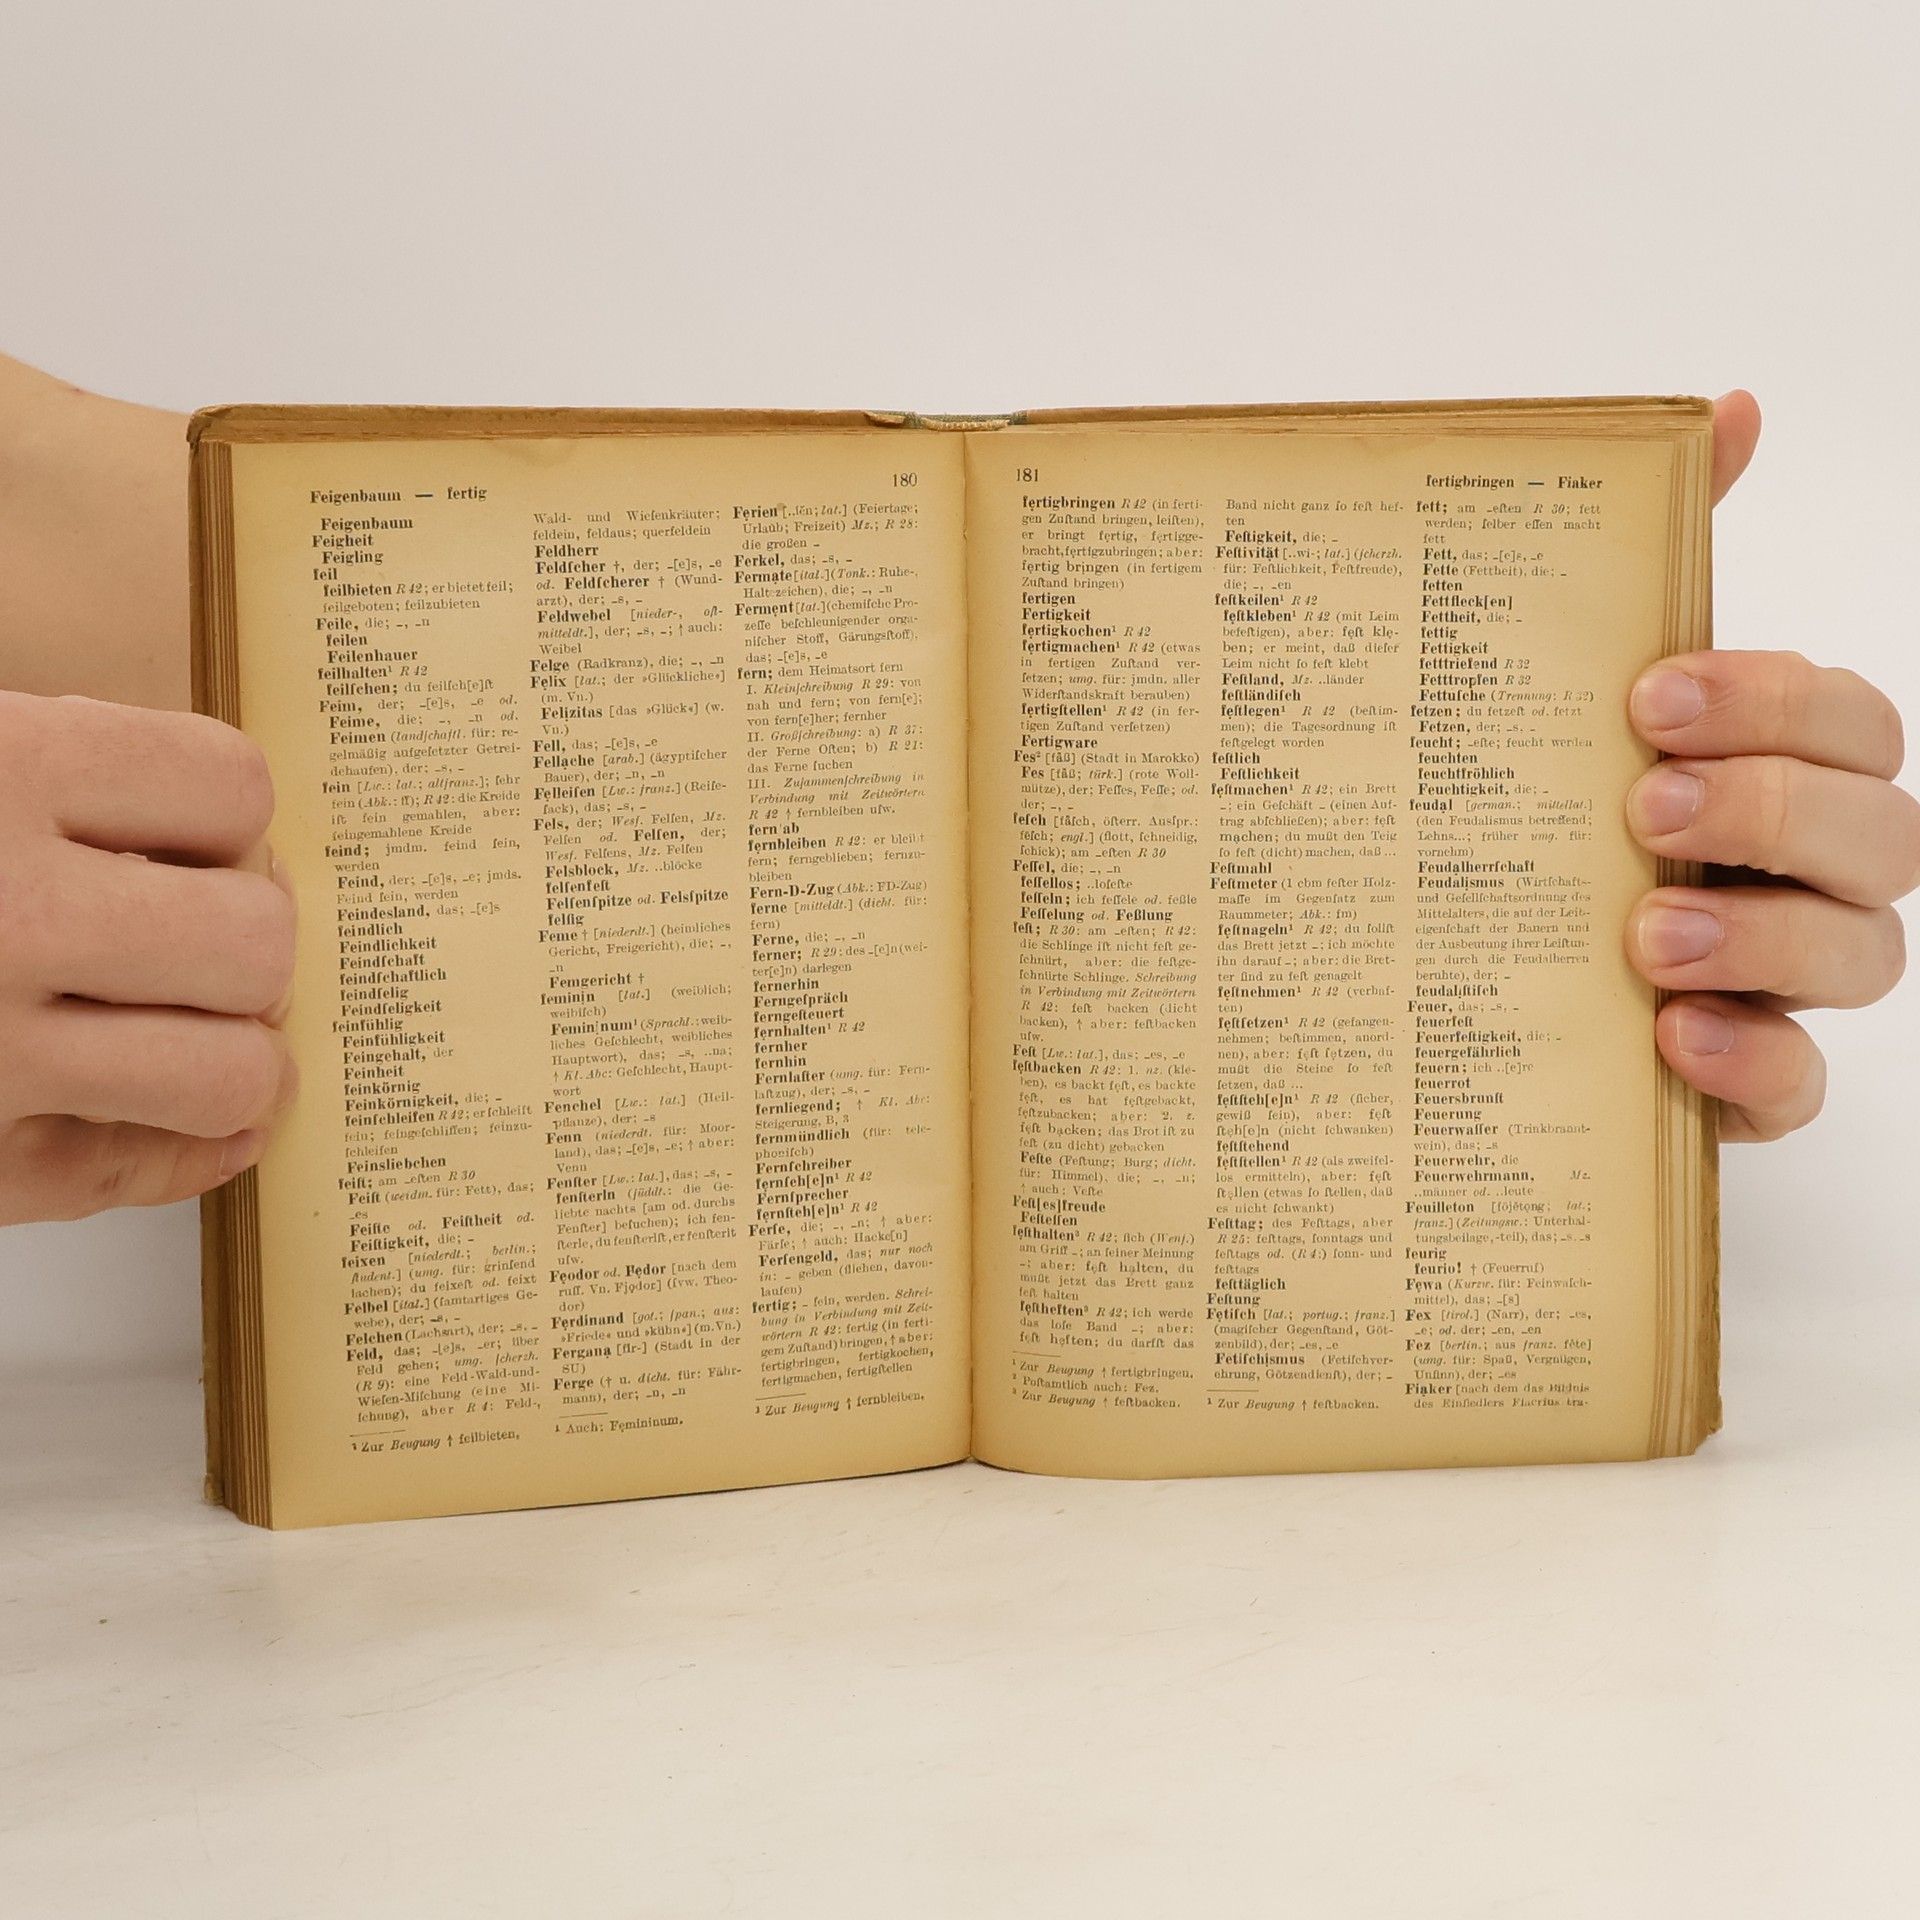 Feigenbaum — fertig
180
Feigenbaum
Feigheit
Feigling
feil
feilbieten R 42; er bietet feil;
feilgeboten; feilzubieten
Feile, die; –, –n
feilen
Feilenhauer
feilhalten¹ R 42
feilſchen; du feilſch[e]ſt
Feim, der; –[e]s, –e od.
Feime, die; –, –n od.
Feimen (landſchaftl. für: re-
gelmäßig aufgeſetzter Getrei-
dehaufen), der; –s, –
fein [Lw.: lat.; altfranz.]; ſehr
fein (Abk.: ff); R 42: die Kreide
iſt fein gemahlen, aber:
feingemahlene Kreide
feind; jmdm. feind ſein,
werden
Feind, der; –[e]s, –e; jmds.
Feind ſein, werden
Feindesland, das; –[e]s
feindlich
Feindlichkeit
Feindſchaft
feindſchaftlich
feindſelig
Feindſeligkeit
feinfühlig
Feinfühligkeit
Feingehalt, der
Feinheit
feinkörnig
Feinkörnigkeit, die; –
feinſchleifen R 42; er ſchleift
fein; feingeſchliffen; feinzu-
ſchleifen
Feinsliebchen
feiſt; am –eſten R 30
Feiſt (weidm. für: Fett), das;
–es
Feiſte od. Feiſtheit od.
Feiſtigkeit, die; –
feixen [niederdt.; berlin.;
ſtudent.] (umg. für: grinſend
lachen); du feixeſt od. feixt
Felbel [ital.] (ſamtartiges Ge-
webe), der; –s, –
Felchen (Lachsart), der; –s, –
Feld, das; –[e]s, –er; über
Feld gehen; umg. ſcherzh.
(R 9): eine Feld-Wald-und-
Wieſen-Miſchung (eine Mi-
ſchung), aber R 4: Feld-,
¹ Zur Beugung ↑ feilbieten.
Wald- und Wieſenkräuter;
feldein, feldaus; querfeldein
Feldherr
Feldſcher †, der; –[e]s, –e
od. Feldſcherer † (Wund-
arzt), der; –s, –
Feldwebel [nieder-, oſt-
mitteldt.], der; –s, –; ↑ auch:
Weibel
Felge (Radkranz), die; –, –n
Felix [lat.; der »Glückliche«]
(m. Vn.)
Felizitas [das »Glück«] (w.
Vn.)
Fell, das; –[e]s, –e
Fellache [arab.] (ägyptiſcher
Bauer), der; –n, –n
Felleiſen [Lw.: franz.] (Reiſe-
ſack), das; –s, –
Fels, der; Wesf. Felſen, Mz.
Felſen od. Felſen, der;
Wesf. Felſens, Mz. Felſen
Felsblock, Mz. ..blöcke
felſenfeſt
Felſenſpitze od. Felsſpitze
felſig
Feme † [niederdt.] (heimliches
Gericht, Freigericht), die; –,
–n
Femgericht †
feminin [lat.] (weiblich;
weibiſch)
Femininum¹ (Sprachl.: weib-
liches Geſchlecht, weibliches
Hauptwort), das; –s, ..na;
↑ Kl. Abc: Geſchlecht, Haupt-
wort
Fenchel [Lw.: lat.] (Heil-
pflanze), der; –s
Fenn (niederdt. für: Moor-
land), das; –[e]s, –e; ↑ aber:
Venn
Fenſter [Lw.: lat.], das; –s, –
fenſterln (ſüddt.: die Ge-
liebte nachts [am od. durchs
Fenſter] beſuchen); ich fen-
ſterle, du fenſterlſt, er fenſterlt
uſw.
Feodor od. Fedor [nach dem
ruſſ. Vn. Fjodor] (ſvw. Theo-
dor)
Ferdinand [got.; ſpan.; aus:
»Friede« und »kühn«] (m. Vn.)
Fergana [fĭr-] (Stadt in der
SU)
Ferge († u. dicht. für: Fähr-
mann), der; –n, –n
¹ Auch: Femininum.
Ferien [..ĭĕn; lat.] (Feiertage;
Urlaub; Freizeit) Mz.; R 28:
die großen –
Ferkel, das; –s, –
Fermate [ital.] (Tonk.: Ruhe-,
Haltezeichen), die; –, –n
Ferment [lat.] (chemiſche Pro-
zeſſe beſchleunigender orga-
niſcher Stoff, Gärungsſtoff),
das; –[e]s, –e
fern; dem Heimatsort fern
I. Kleinſchreibung R 29: von
nah und fern; von fern[e];
von fern[e]her; fernher
II. Großſchreibung: a) R 37:
der Ferne Oſten; b) R 21:
das Ferne ſuchen
III. Zuſammenſchreibung in
Verbindung mit Zeitwörtern
R 42 ↑ fernbleiben uſw.
fern ab
fernbleiben R 42: er bleibt
fern; ferngeblieben; fernzu-
bleiben
Fern-D-Zug (Abk.: FD-Zug)
ferne [mitteldt.] (dicht. für:
fern)
Ferne, die; –, –n
ferner; R 29: des –[e]n (wei-
ter[e]n) darlegen
fernerhin
Ferngeſpräch
ferngeſteuert
fernhalten¹ R 42
fernher
fernhin
Fernlaſter (umg. für: Fern-
laſtzug), der; –s, –
fernliegend; ↑ Kl. Abc:
Steigerung, B, 3
fernmündlich (für: tele-
phoniſch)
Fernſchreiber
fernſeh[e]n¹ R 42
Fernſprecher
fernſteh[e]n¹ R 42
Ferſe, die; –, –n; ↑ aber:
Färſe; ↑ auch: Hacke[n]
Ferſengeld, das; nur noch
in: – geben (fliehen, davon-
laufen)
fertig; – ſein, werden. Schrei-
bung in Verbindung mit Zeit-
wörtern R 42: fertig (in ferti-
gem Zuſtand) bringen, ↑ aber:
fertigbringen, fertigkochen,
fertigmachen, fertigſtellen
¹ Zur Beugung ↑ fernbleiben.
181
fertigbringen — Fiaker
fertigbringen R 42 (in ferti-
gen Zuſtand bringen, leiſten),
er bringt fertig, fertigge-
bracht, fertigzubringen; aber:
fertig bringen (in fertigem
Zuſtand bringen)
fertigen
Fertigkeit
fertigkochen¹ R 42
fertigmachen¹ R 42 (etwas
in fertigen Zuſtand ver-
ſetzen; umg. für: jmdn. aller
Widerſtandskraft berauben)
fertigſtellen¹ R 42 (in fer-
tigen Zuſtand verſetzen)
Fertigware
Fes² [fäß] (Stadt in Marokko)
Fes [fäß; türk.] (rote Woll-
mütze), der; Feſſes, Feſſe; od.
der; –, –
feſch [fäſch, öſterr. Ausſpr.:
feſch; engl.] (flott, ſchneidig,
ſchick); am –eſten R 30
Feſſel, die; –, –n
feſſellos; ..loſeſte
feſſeln; ich feſſele od. feßle
Feſſelung od. Feßlung
feſt; R 30: am –eſten; R 42:
die Schlinge iſt nicht feſt ge-
ſchnürt, aber: die feſtge-
ſchnürte Schlinge. Schreibung
in Verbindung mit Zeitwörtern
R 42: feſt backen (dicht
backen), ↑ aber: feſtbacken
uſw.
Feſt [Lw.: lat.], das; –es, –e
feſtbacken R 42: 1. nz. (kle-
ben), es backt feſt, es backte
feſt, es hat feſtgebackt,
feſtzubacken; aber: 2. z.
feſt backen; das Brot iſt zu
feſt (zu dicht) gebacken
Feſte (Feſtung; Burg; dicht.
für: Himmel), die; –, –n;
↑ auch: Veſte
Feſt[es]freude
Feſteſſen
feſthalten³ R 42; ſich (Wenf.)
am Griff –; an ſeiner Meinung
–; aber: feſt halten, du
mußt jetzt das Brett ganz
feſt halten
feſtheften³ R 42; ich werde
das loſe Band –; aber:
feſt heften; du darfſt das
¹ Zur Beugung ↑ fertigbringen.
² Poſtamtlich auch: Fez.
³ Zur Beugung ↑ feſtbacken.
Band nicht ganz ſo feſt hef-
ten
Feſtigkeit, die; –
Feſtivität [..wi-; lat.] (ſcherzh.
für: Feſtlichkeit, Feſtfreude),
die; –, –en
feſtkeilen¹ R 42
feſtkleben¹ R 42 (mit Leim
befeſtigen), aber: feſt kle-
ben; er meint, daß dieſer
Leim nicht ſo feſt klebt
Feſtland, Mz. ..länder
feſtländiſch
feſtlegen¹ R 42 (beſtim-
men); die Tagesordnung iſt
feſtgelegt worden
feſtlich
Feſtlichkeit
feſtmachen¹ R 42; ein Brett
–; ein Geſchäft – (einen Auf-
trag abſchließen); aber: feſt
machen; du mußt den Teig
ſo feſt (dicht) machen, daß ...
Feſtmahl
Feſtmeter (1 cbm feſter Holz-
maſſe im Gegenſatz zum
Raummeter; Abk.: fm)
feſtnageln¹ R 42; du ſollſt
das Brett jetzt –; ich möchte
ihn darauf –; aber: die Bret-
ter ſind zu feſt genagelt
feſtnehmen¹ R 42 (verhaf-
ten)
feſtſetzen¹ R 42 (gefangen-
nehmen; beſtimmen, anord-
nen), aber: feſt ſetzen, du
mußt die Steine ſo feſt
ſetzen, daß ...
feſtſteh[e]n¹ R 42 (ſicher,
gewiß ſein), aber: feſt
ſteh[e]n (nicht ſchwanken)
feſtſtehend
feſtſtellen¹ R 42 (als zweifel-
los ermitteln), aber: feſt
ſtellen (etwas ſo ſtellen, daß
es nicht ſchwankt)
Feſttag; des Feſttags, aber
R 25: feſttags, ſonntags und
feſttags od. (R 4:) ſonn- und
feſttags
feſttäglich
Feſtung
Fetiſch [lat.; portug.; franz.]
(magiſcher Gegenſtand, Göt-
zenbild), der; –es, –e
Fetiſchismus (Fetiſchver-
ehrung, Götzendienſt), der; –
¹ Zur Beugung ↑ feſtbacken.
fett; am –eſten R 30; fett
werden; ſelber eſſen macht
fett
Fett, das; –[e]s, –e
Fette (Fettheit), die; –
fetten
Fettfleck[en]
Fettheit, die; –
fettig
Fettigkeit
fetttriefend R 32
Fetttropfen R 32
Fettuſche (Trennung: R 32)
fetzen; du fetzeſt od. fetzt
Fetzen, der; –s, –
feucht; –eſte; feucht werden
feuchten
feuchtfröhlich
Feuchtigkeit, die; –
feudal [german.; mittellat.]
(den Feudalismus betreffend;
Lehns...; früher umg. für:
vornehm)
Feudalherrſchaft
Feudalismus (Wirtſchafts-
und Geſellſchaftsordnung des
Mittelalters, die auf der Leib-
eigenſchaft der Bauern und
der Ausbeutung ihrer Leiſtun-
gen durch die Feudalherren
beruhte), der; –
feudaliſtiſch
Feuer, das; –s, –
feuerfeſt
Feuerfeſtigkeit, die; –
feuergefährlich
feuern; ich ..[e]re
feuerrot
Feuersbrunſt
Feuerung
Feuerwaſſer (Trinkbrannt-
wein), das; –s
Feuerwehr, die
Feuerwehrmann, Mz.
..männer od. ..leute
Feuilleton [föjĕtong; lat.;
franz.] (Zeitungsw.: Unterhal-
tungsbeilage, -teil), das; –s, –s
feurig
feurio! † (Feuerruf)
Fewa (Kurzw. für: Feinwaſch-
mittel), das; –[s]
Fex [tirol.] (Narr), der; –es,
–e; od. der; –en, –en
Fez [berlin.; aus franz. fête]
(umg. für: Spaß, Vergnügen,
Unſinn), der; –es
Fiaker [nach dem das Bildnis
des Einſiedlers Fiacrius tra-